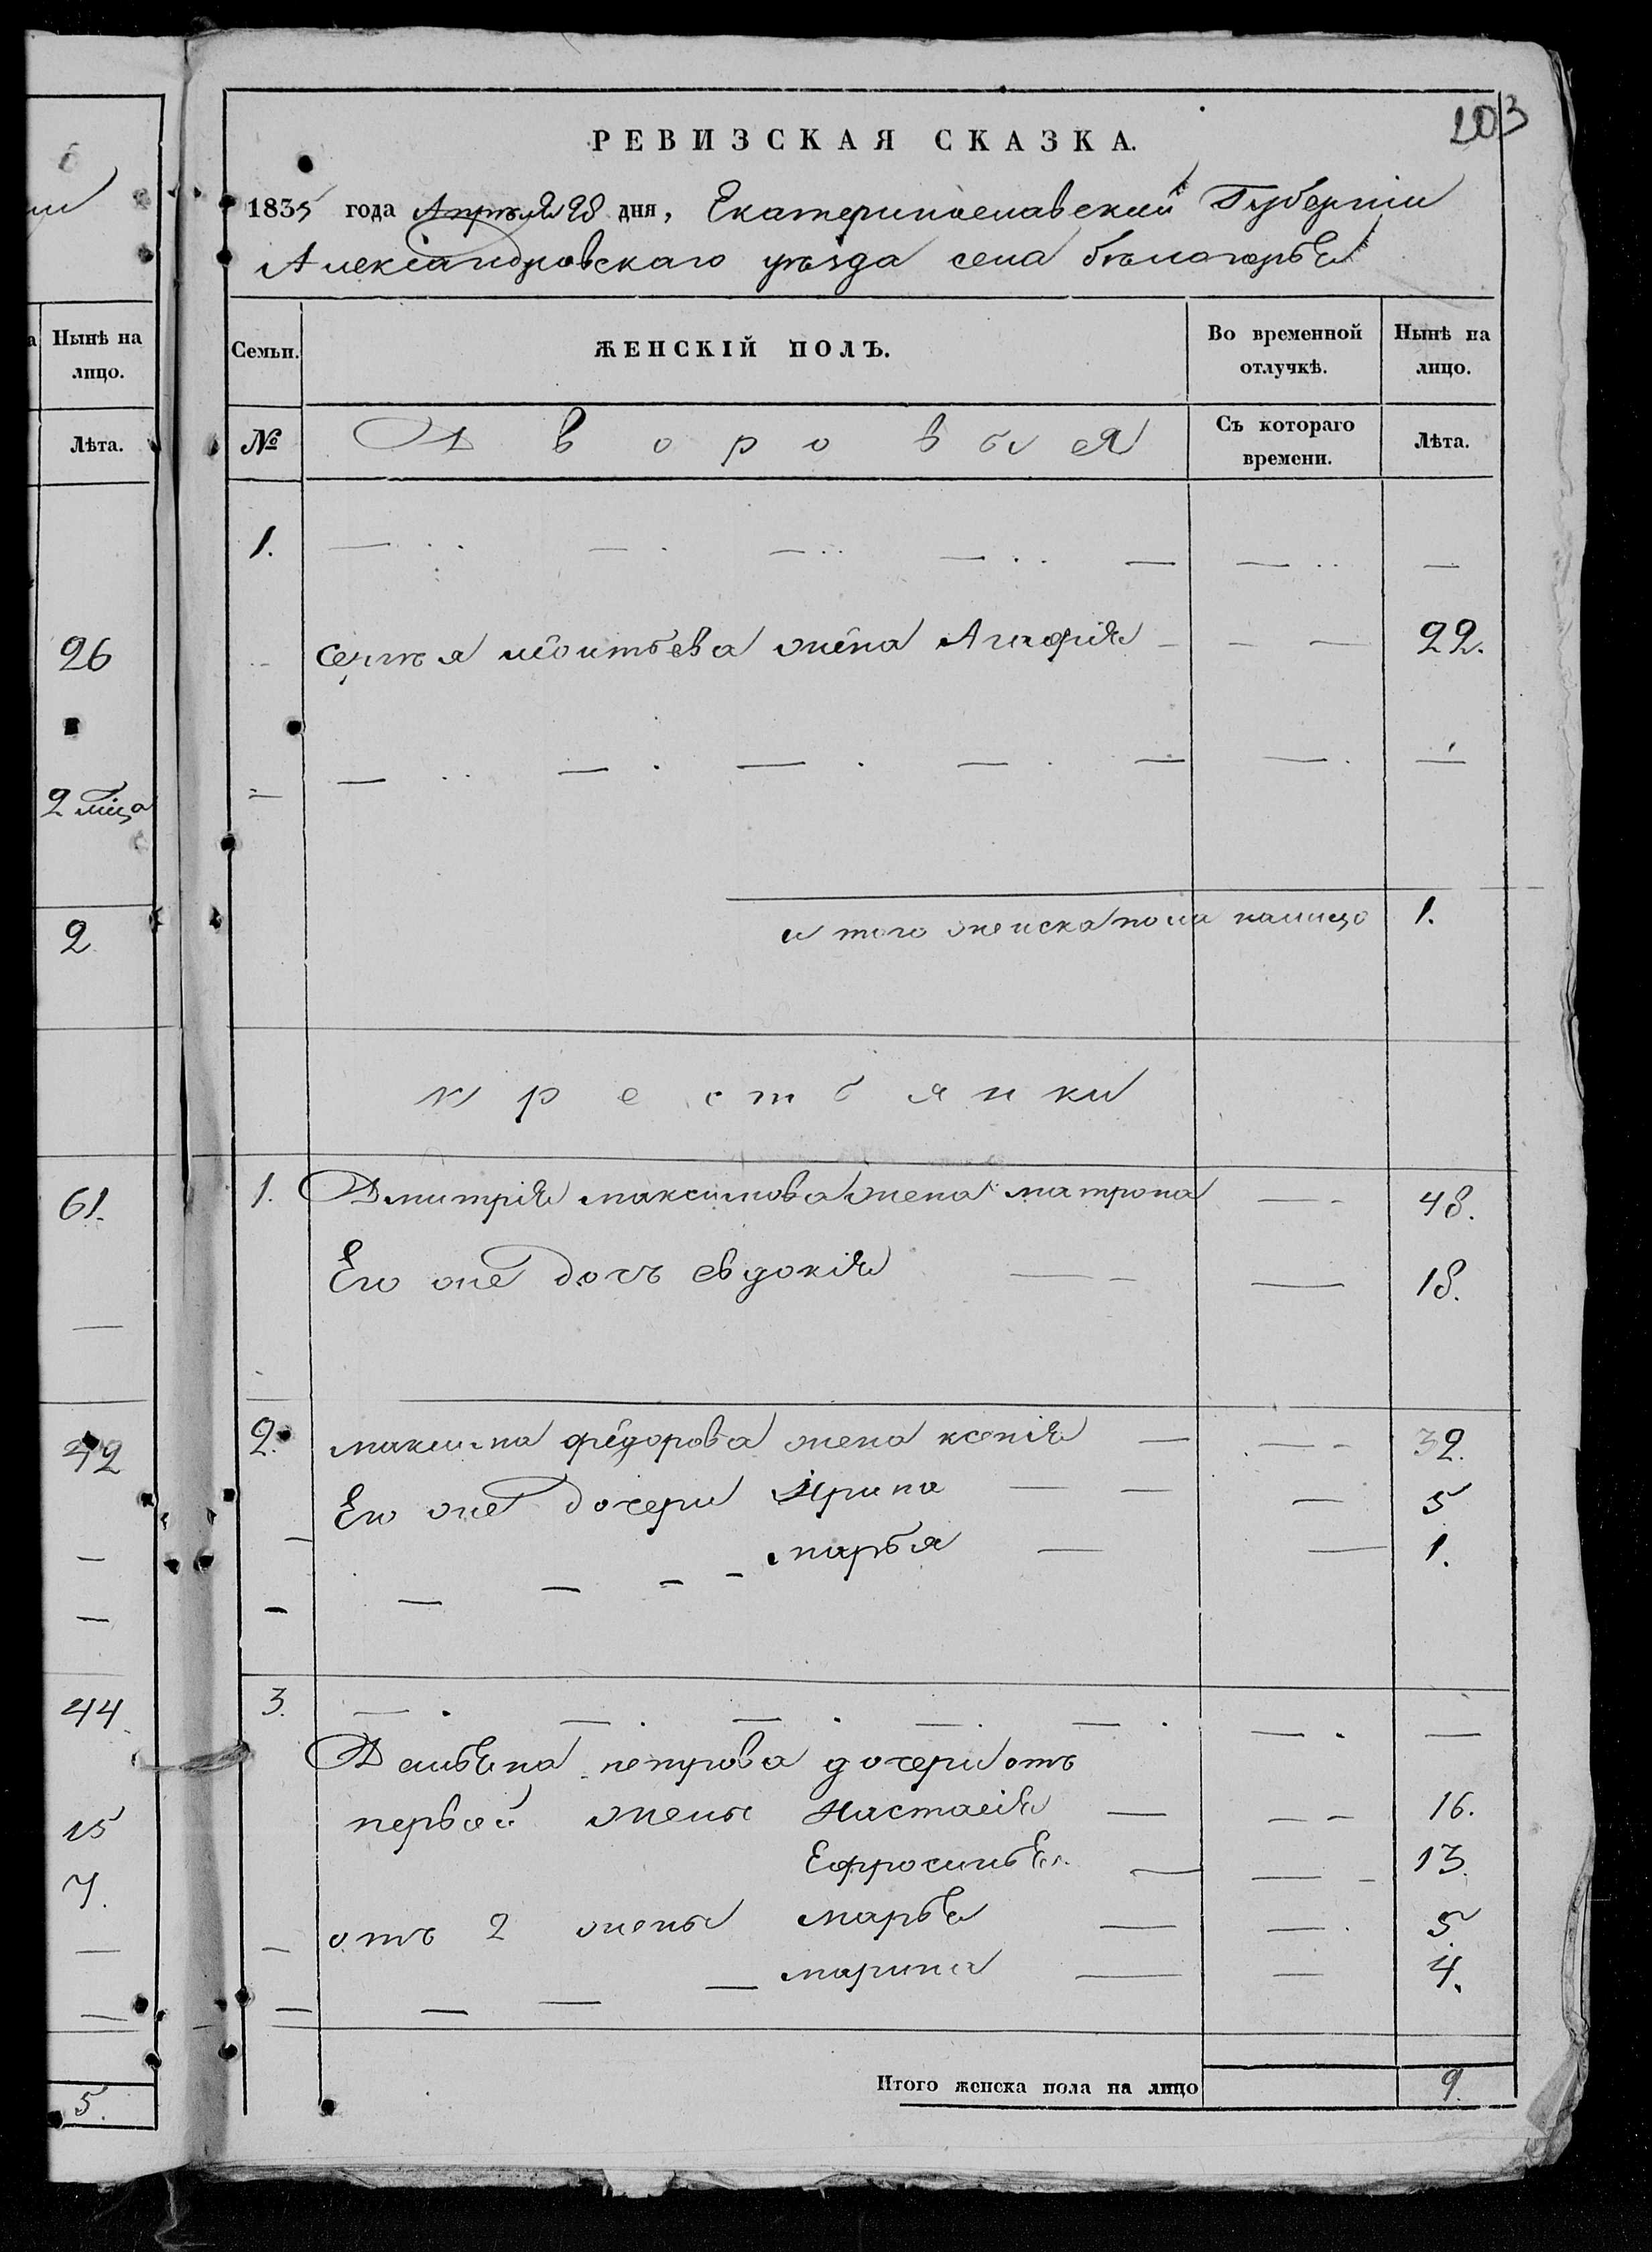 203
РЕВИЗСКАЯ СКАЗКА.
1835 года Апрѣля 28 дня, Екатеринославской Губернiи
Александровскаго уѣзда села бѣлогорья
Нынѣ на лицо.
Лѣта.
26
2 мѣца
2
61.
42
44
15
7.
5.
Семьи. ЖЕНСКІЙ ПОЛЪ. Во временной отлучкѣ. Нынѣ на лицо.
№ Дворовыя Съ котораго времени. Лѣта.
1. — — — — — — —
Сергѣя жена Агафiя — — — 22.
— — — — — — —
итого женска пола налицо 1.
крестьянки
1. Дмитрiя максимова жена матрона — - 48.
Его же дочь евдокiя — - — 18.
2. максима фёдорова жена ксенiя — — - 32.
Его же дочери Ирина — — — 5
— марья — — 1.
3. — — — — — — —
Демьяна петрова дочери отъ
первой жены Настасiя — — - 16.
Ефросинья — — - 13.
отъ 2 жены марья — — 5
— марина — — 4.
Итого женска пола на лицо 9